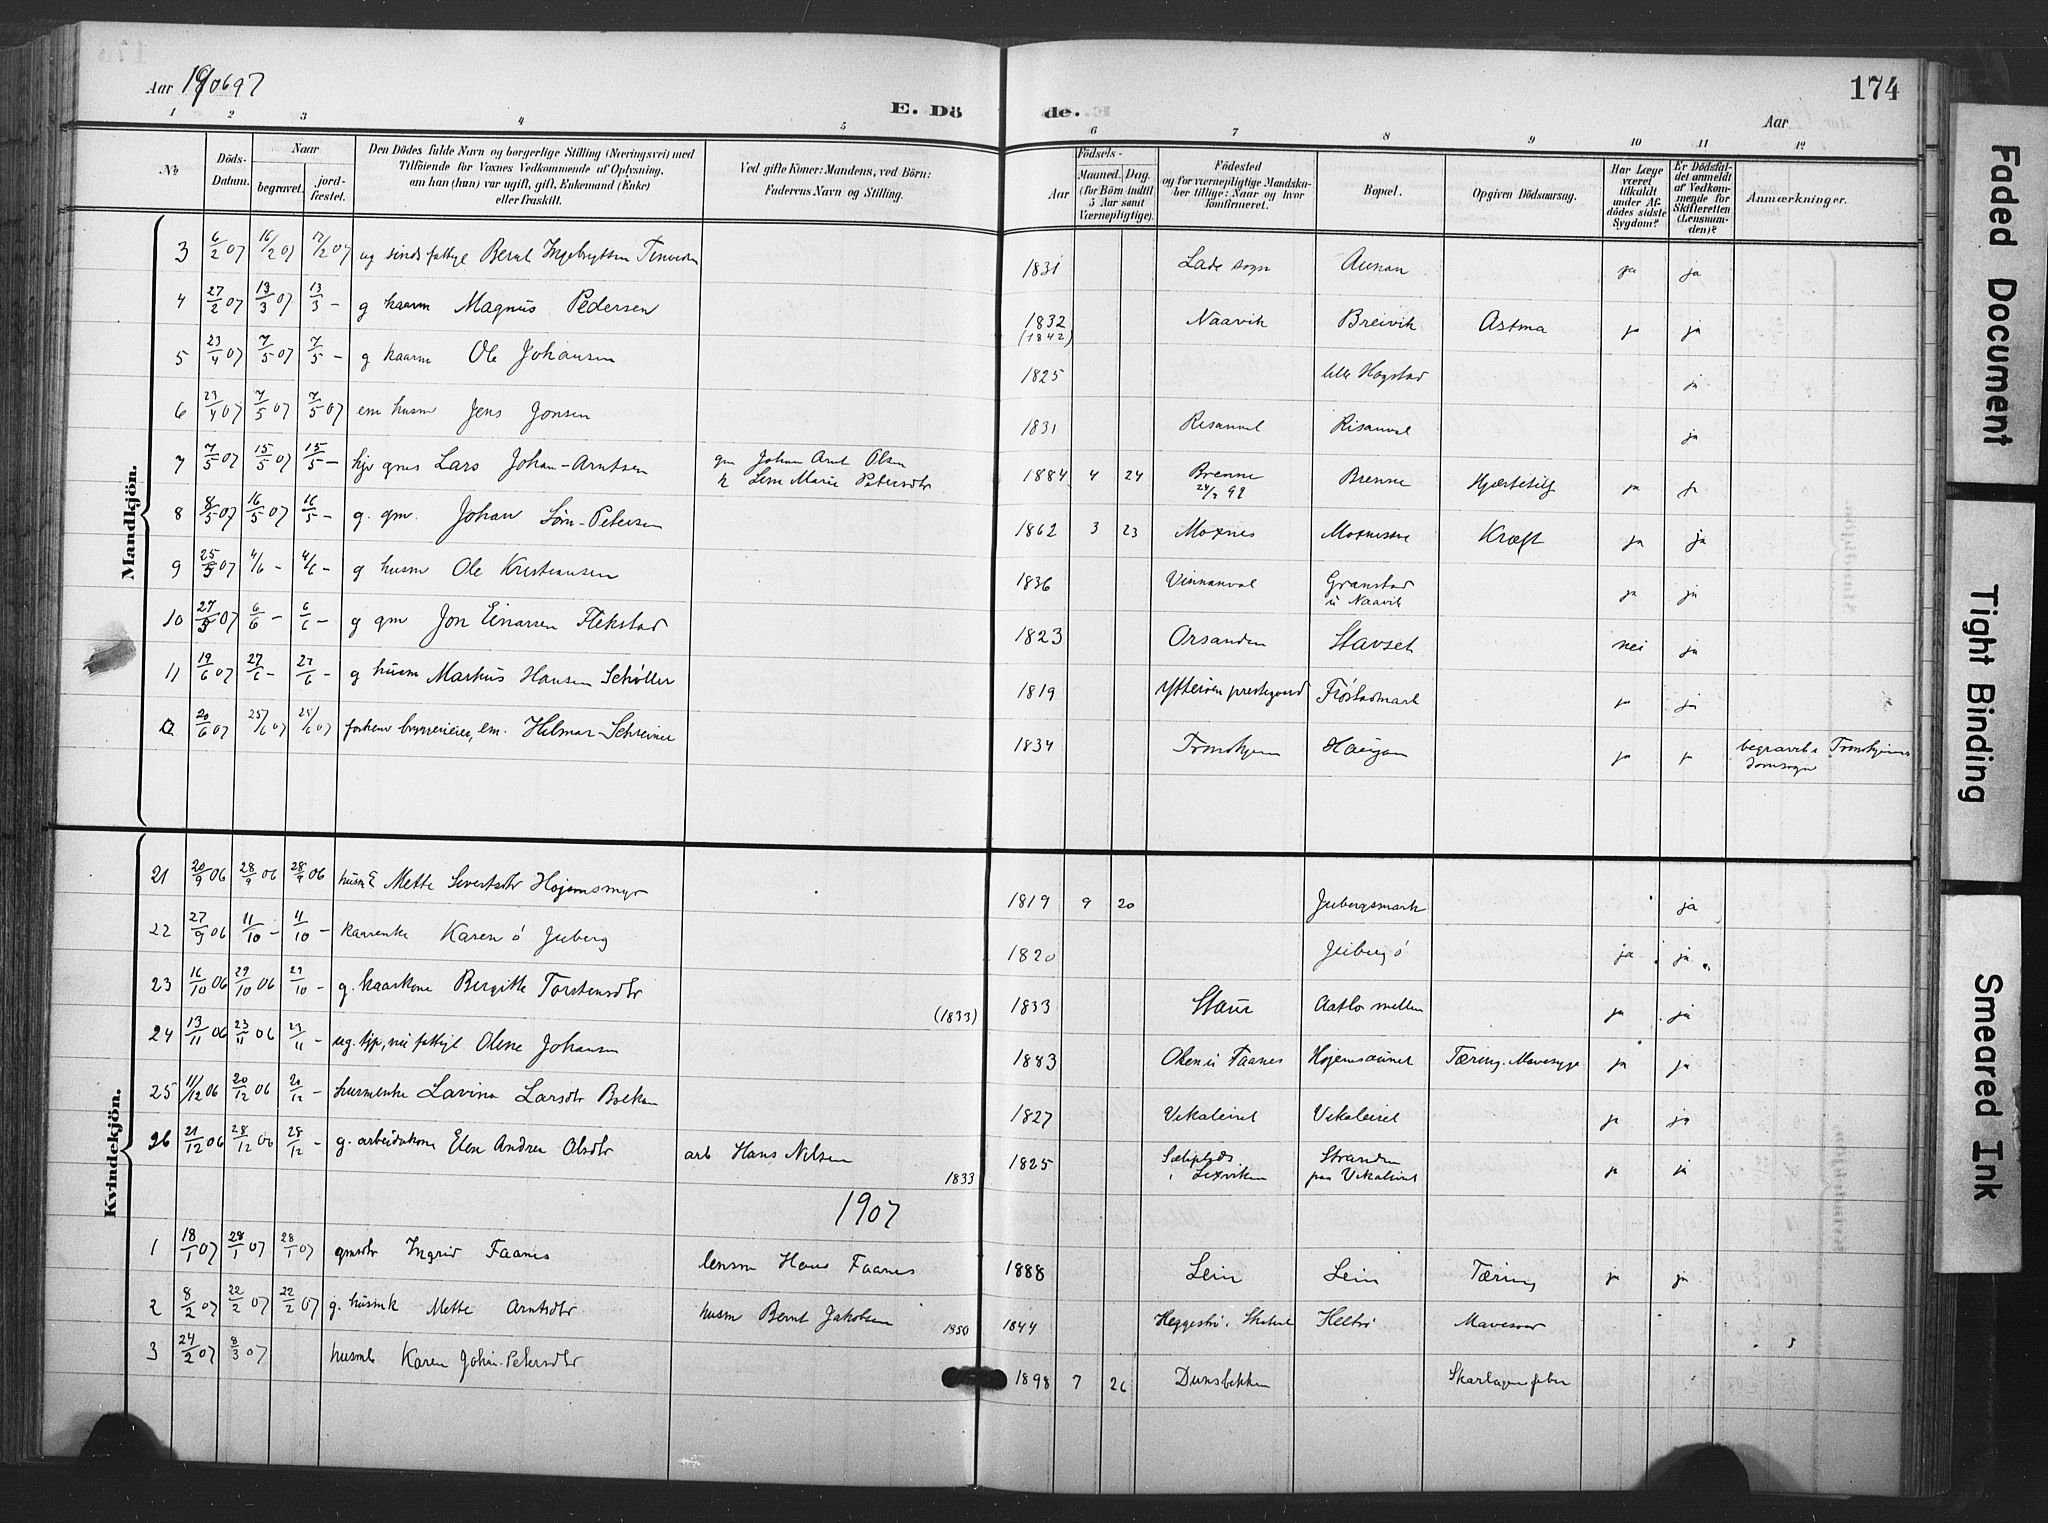 Aar 190697
E. Döde.
Aar
174
1 2 3 4 5 6 7 8 9 10 11 12
№
Döds-Datum.
Naar
begravet.
jordfæstet.
Den Dödes fulde Navn og borgerlige Stilling (Næringsvei) med
Tilföiende for Voxnes Vedkommende af Oplysning,
om han (hun) var ugift, gift, Enkemand (Enke)
eller fraskilt.
Ved gifte Koner: Mandens, ved Börn:
Faderens Navn og Stilling.
Födsels-
Aar
Maaned.
Dag.
(for Börn indtil
5 Aar samt
Værnepligtige).
Födested
og for værnepligtige Mandskaber tillige: Naar og hvor
konfirmeret.
Bopæl.
Opgiven Dödsaarsag.
Har Læge
været
tilkaldt
under Afdödes sidste
Sygdom?
Er Dödsfaldet anmeldt
af Vedkommende for
Skifteretten
(Lensmanden)?
Anmærkninger.
Mandkjön.
3 6/2 07 16/2 07 17/2 07 ug sindsfattige Bernt Ingebrigtsen 1831 Lade sogn Aunan ja ja
4 27/2 07 13/3 07 13/3 - g kaarm Magnus Pedersen 1832 (1842) Naavik Breivik Astma ja ja
5 23/4 07 7/5 07 7/5 - g kaarm Ole Johansen 1825 lille Hogstad ja
6 23/4 07 7/5 07 7/5 07 em husm Jens Jonsen 1831 Risanval Risanval ja
7 7/5 07 15/5 07 15/5 - Lars Johan Arntsen gm Johan Arnt Olsen
k Line Marie Petersdtr 1884 4 24 Brenne Brenne ja ja
8 8/5 07 16/5 07 16/5 - g. gm. Johan Sørn Petersen 1862 3 23 Moxnes Kræft ja ja
9 25/5 07 4/6 - 4/6 - g husm Ole Kristiansen 1836 Vinnanval Granstad
u Naavik ja ja
10 27/5 07 6/6 - 6/6 - g gm Jon Einarsen Flekstad 1823 Orsanden Stavset nei ja
11 19/6 07 27/6 - 27/6 - g husm Markus Hansen Schøller 1819 Ytterøen prestegaard Frøstadmark ja ja
12 20/6 07 25/6 07 25/6 07 em. Hilmar Schreiner 1834 Tronhjem Haugan ja ja begravet i Tronhjems
domsogn
Kvindekjön.
21 20/9 06 28/9 06 28/9 06 husmE Mette Sivertsdtr Højemsmyr 1819 9 20 Jubergsmark ja
22 27/9 06 11/10 - 11/10 - kaarenke Karen ø Juberg 1820 Juberg ø ja ja
23 16/10 06 29/10 06 29/10 - g. kaarkone Bergitte Torstensdtr (1833) 1833 Staur Aatlo mellem ja ja
24 13/11 06 23/11 06 23/11 - ug. Olene Johansen 1883 Oken u Faanes Højemsaunet Tæring. Mavesyge ja ja
25 11/12 06 20/12 06 20/12 - husmenke Lavina Larsdtr 1827 Vikaleiret Vikaleiret ja ja
26 21/12 06 28/12 06 28/12 - g. arbeiderkone Elen Andrea Olsdtr arb Hans Nilsen 1833 1825 i Lexviken Stranden
paa Vikaleiret ja ja
1907
1 18/1 07 28/1 07 28/1 07 gmsdtr Ingrid Faanes lensm Hans Faanes 1888 Lein Lein Tæring ja ja
2 8/2 07 22/2 07 22/2 07 g. husmk Mette Arntsdtr husm Bernt Jakobsen 1850 1844 Helbø
3 24/2 07 8/3 07 husmb Karen Johan-Petersdtr 1898 7 26 Dunsbekken Skarlagensfeber
Faded Document
Tight Binding
Smeared Ink